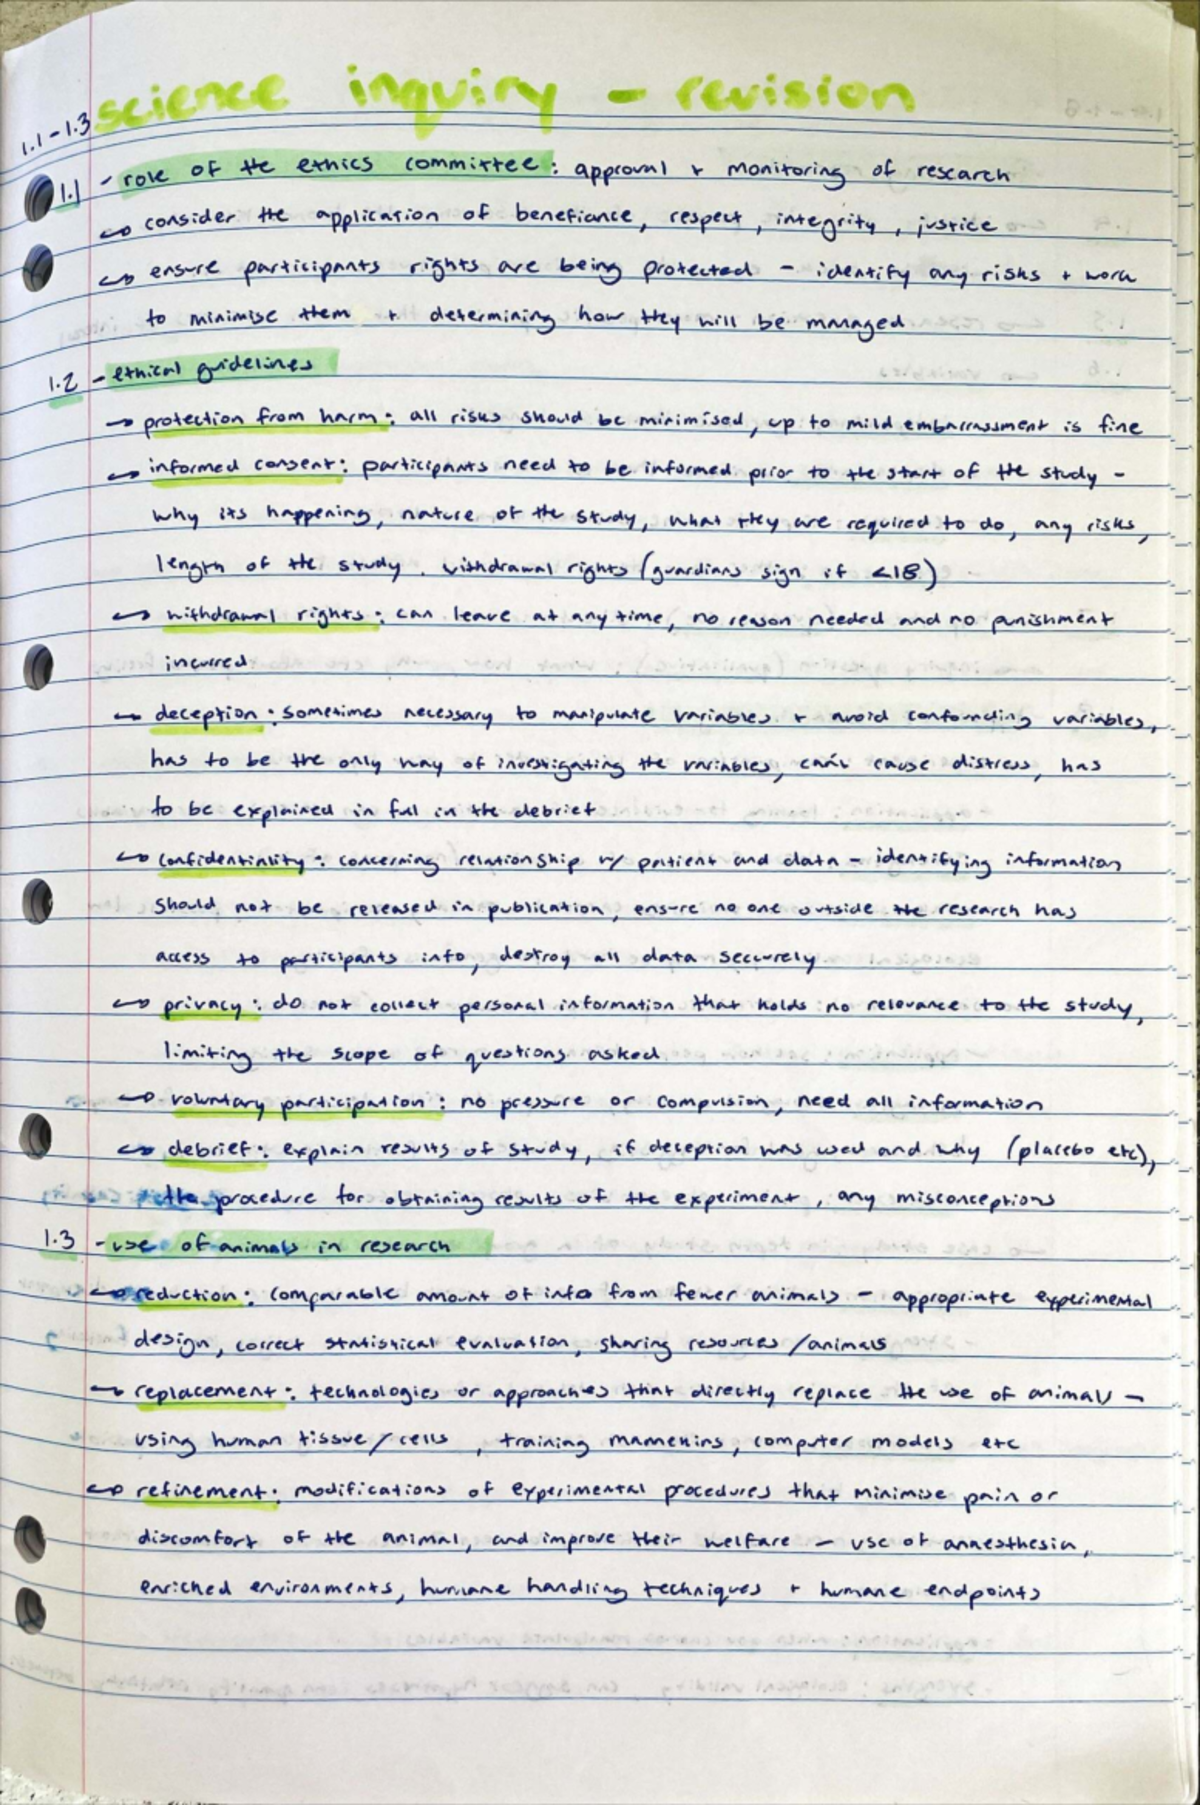 science inquiry - revision
1.1-1.3
1.1 - role of the ethics committee: approval + monitoring of research
↪ consider the application of benefiance, respect, integrity, justice
↪ ensure participants rights are being protected - identify any risks + work
to minimise them + determining how they will be managed
1.2 - ethical guidelines
↪ protection from harm: all risks should be minimised, up to mild embarrassment is fine
↪ informed consent: participants need to be informed prior to the start of the study -
why its happening, nature of the study, what they are required to do, any risks,
length of the study, withdrawal rights (guardians sign if <18)
↪ withdrawal rights: can leave at any time, no reason needed and no punishment
incurred
↪ deception: sometimes necessary to manipulate variables + avoid confounding variables,
has to be the only way of investigating the variables, can't cause distress, has
to be explained in full in the debrief
↪ confidentiality: concerning relationship w/ patient and data - identifying information
should not be released in publication, ensure no one outside the research has
access to participants info, destroy all data securely
↪ privacy: do not collect personal information that holds no relevance to the study,
limiting the scope of questions asked
↪ voluntary participation: no pressure or compulsion, need all information
↪ debrief: explain results of study, if deception was used and why (placebo etc),
the procedure for obtaining results of the experiment, any misconceptions
1.3 - use of animals in research
↪ reduction: comparable amount of info from fewer animals - appropriate experimental
design, correct statistical evaluation, sharing resources/animals
↪ replacement: technologies or approaches that directly replace the use of animals -
using human tissue/cells, training mannekins, computer models etc
↪ refinement: modifications of experimental procedures that minimise pain or
discomfort of the animal, and improve their welfare - use of anaesthesia,
enriched environments, humane handling techniques + humane endpoints